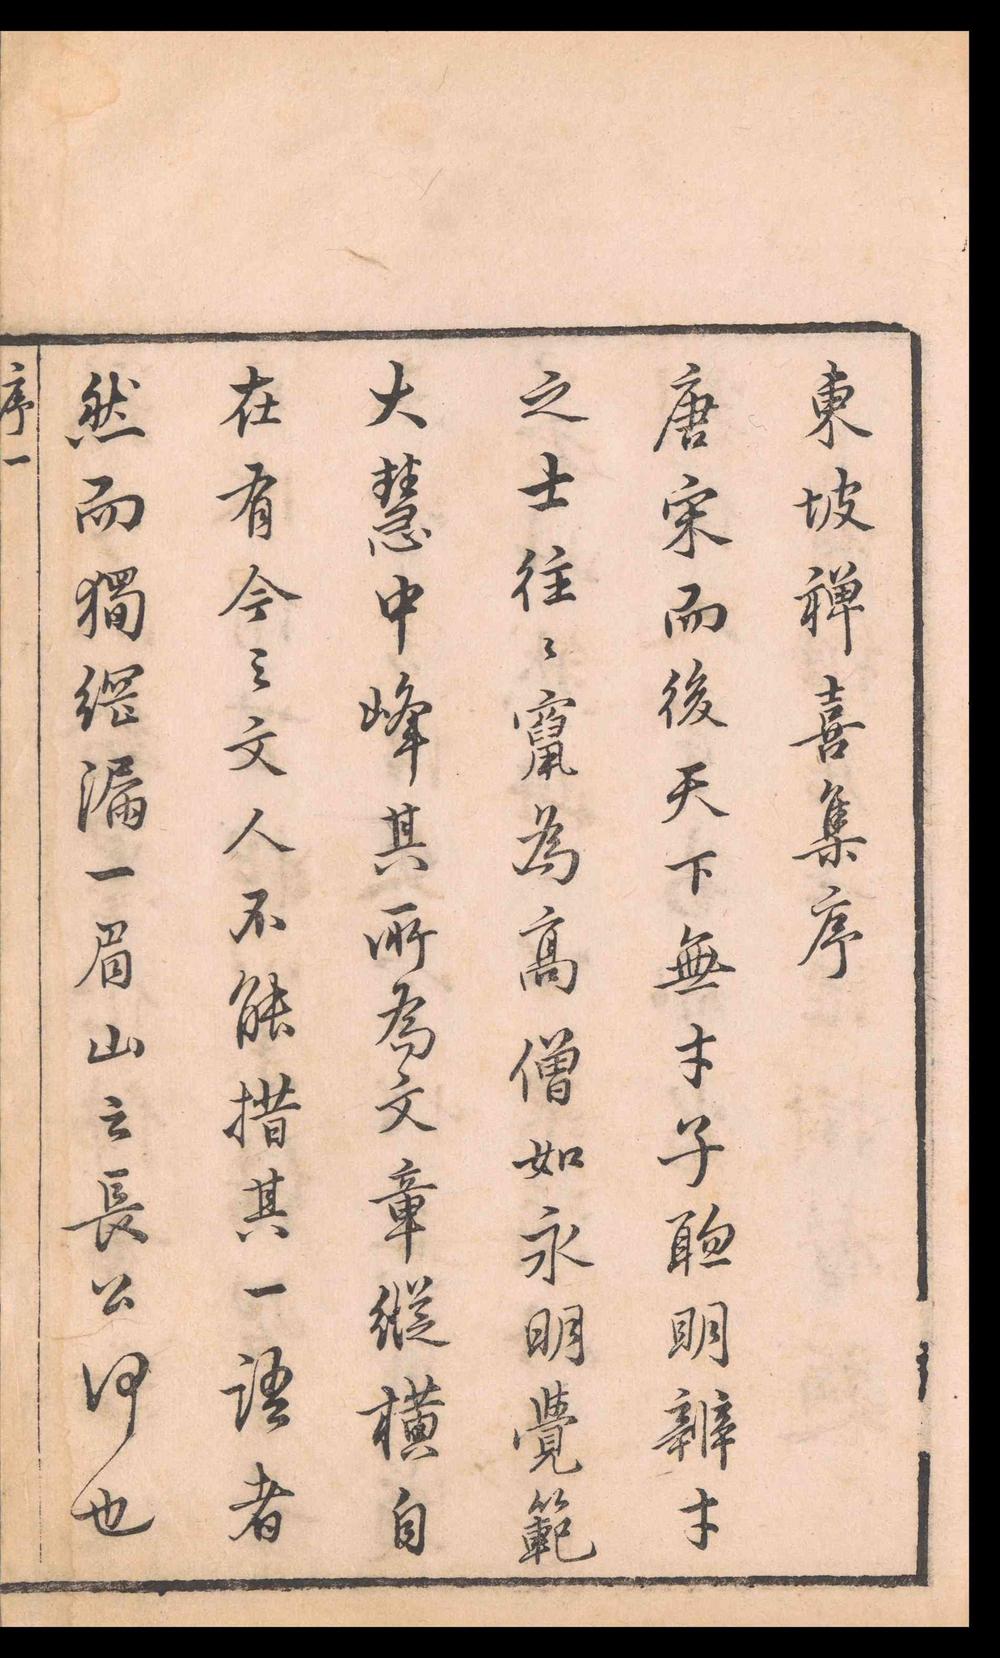 東坡禅喜集序
唐宋而後天下無才子聰明辨才
之士往〻竄為高僧如永明覺範
大慧中峰其所為文章縱橫自
在有今之文人不能措其一語者
然而獨網漏一眉山之長公何也
序一